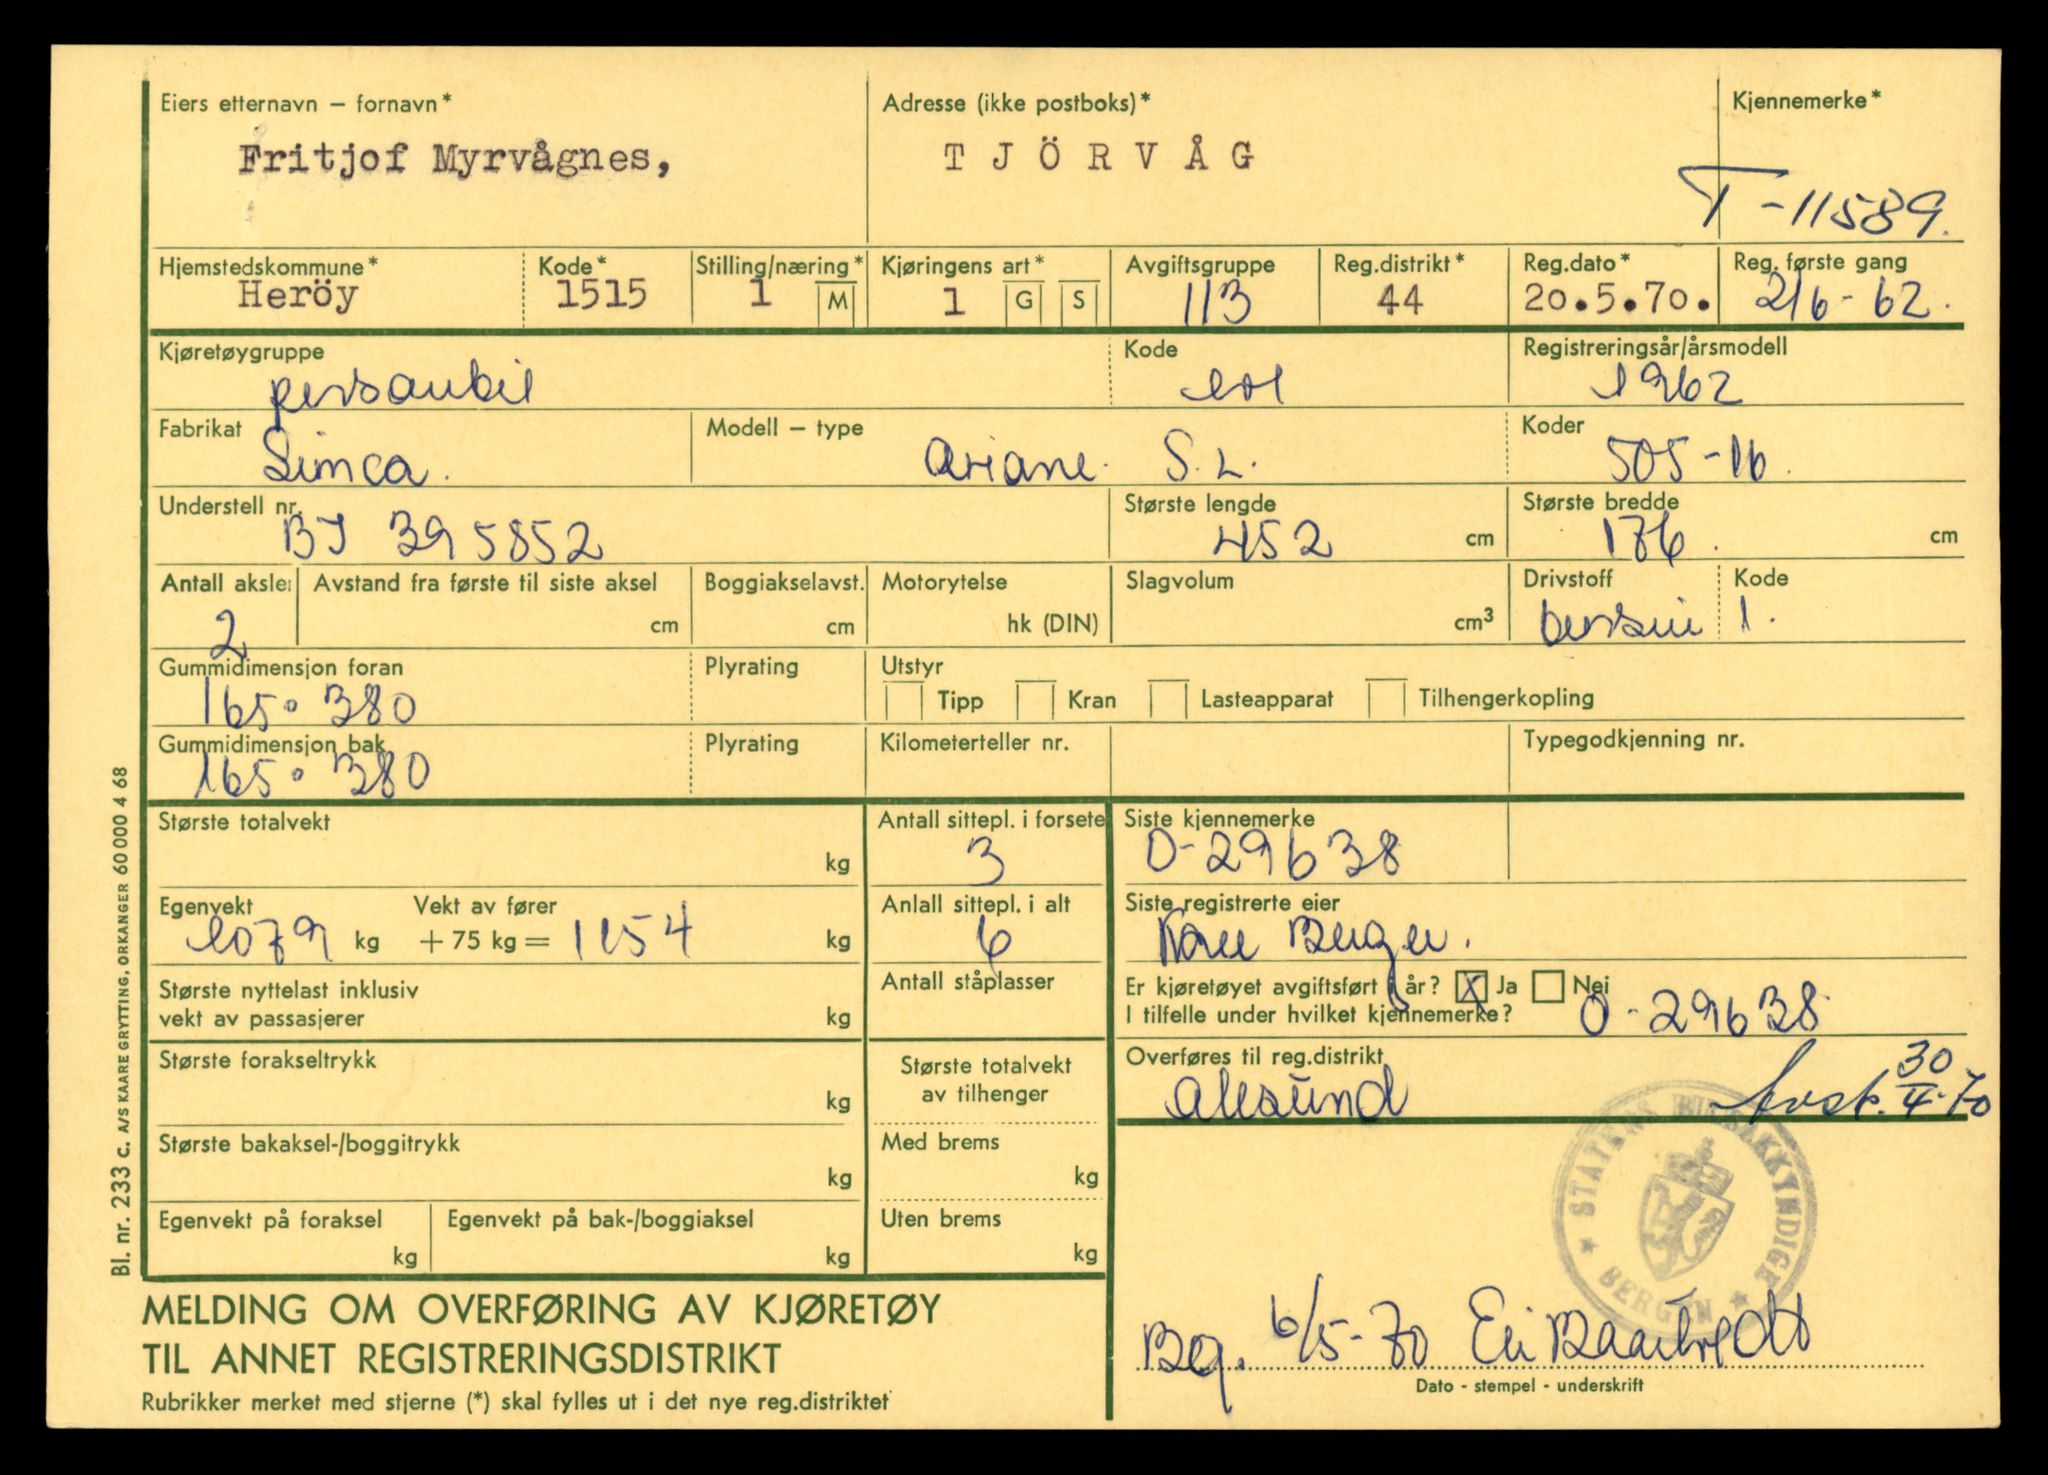 Eiers etternavn – fornavn* Adresse (ikke postboks)* Kjennemerke*
Fritjof Myrvågnes, TJÖRVÅG
T-11589.
Hjemstedskommune* Kode* Stilling/næring* Kjøringens art* Avgiftsgruppe Reg.distrikt* Reg.dato* Reg. første gang
Heröy 1515 1 M 1 G S 113 44 20.5.70. 2/6-62.
Kjøretøygruppe Kode Registreringsår/årsmodell
personbil 101 1962
Fabrikat Modell – type Koder
Simca. Ariane. S.L. 505-16.
Understell nr. Største lengde Største bredde
395852 452 cm 176. cm
Antall aksler Avstand fra første til siste aksel Boggiakselavst. Motorytelse Slagvolum Drivstoff Kode
2 cm cm hk (DIN) cm³ bensin 1.
Gummidimensjon foran Plyrating Utstyr
165 380 Tipp Kran Lasteapparat Tilhengerkopling
Gummidimensjon bak Plyrating Kilometerteller nr. Typegodkjenning nr.
165 380
Største totalvekt kg Antall sittepl. i forsete Siste kjennemerke
3 O-29638
Egenvekt Vekt av fører Antall sittepl. i alt Siste registrerte eier
1079 kg + 75 kg = 1154 kg 6 Kåre Berger.
Største nyttelast inklusiv Antall ståplasser Er kjøretøyet avgiftsført i år? X Ja Nei
vekt av passasjerer kg I tilfelle under hvilket kjennemerke? O-29638
Største forakseltrykk kg Største totalvekt Overføres til reg.distrikt
av tilhenger Ålesund Avsk. 30/4-70
Største bakaksel-/boggitrykk kg Med brems kg
Egenvekt på foraksel kg Egenvekt på bak-/boggiaksel kg Uten brems kg
STATENS BILSAKKYNDIGE
BERGEN
MELDING OM OVERFØRING AV KJØRETØY
TIL ANNET REGISTRERINGSDISTRIKT
Bg. 6/5-70
Dato - stempel - underskrift
Rubrikker merket med stjerne (*) skal fylles ut i det nye reg.distriktet
Bl. nr. 233 c. A/S KAARE GRYTTING, ORKANGER 60 000 4 68